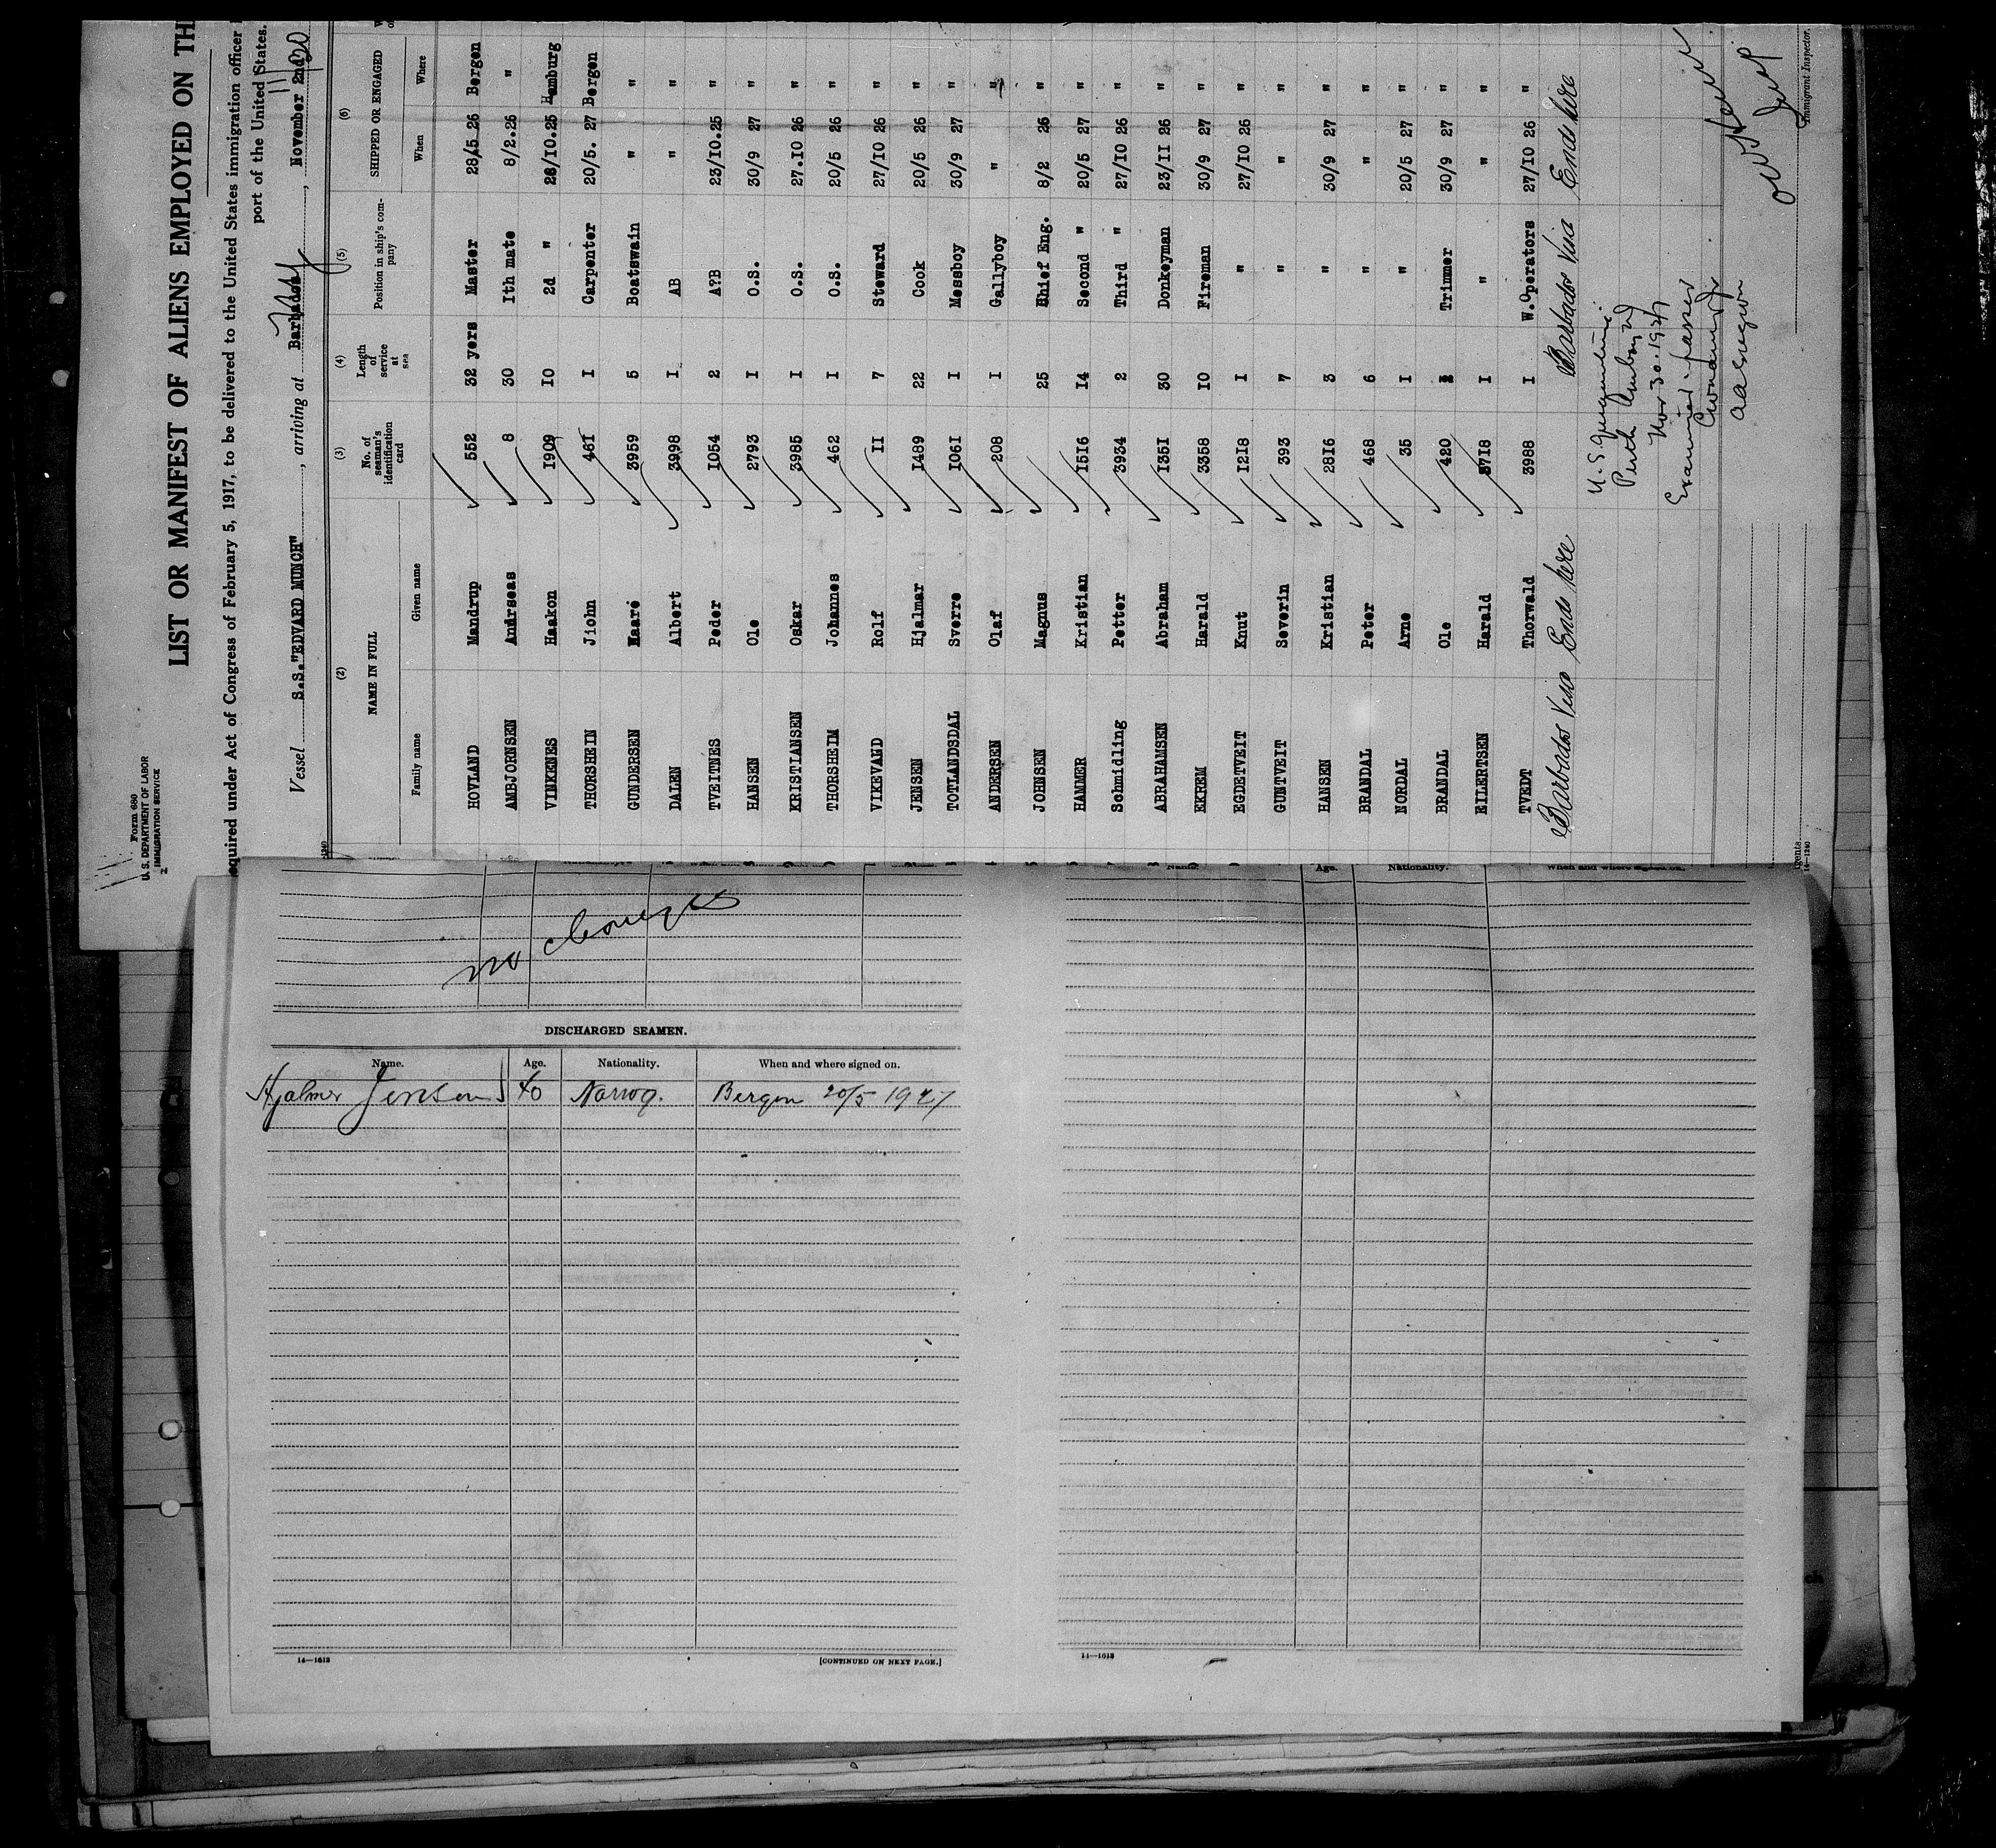 Form 680
U. S. DEPARTMENT OF LABOR
IMMIGRATION SERVICE
LIST OR MANIFEST OF ALIENS EMPLOYED ON TH
equired under Act of Congress of February 5, 1917, to be delivered to the United States immigration officer
port of the United States.
Vessel S.S."EDVARD MUNCH", arriving at Barbados, November 2nd
(2) (3) (4) (5) (6)
NAME IN FULL No. of seaman's identification card Length of service at sea Position in ship's company SHIPPED OR ENGAGED
Family name Given name When Where
HOVLAND Mandrup 552 32 yers Master 28/5 26 Bergen
AMBJORNSEN Andrseas 8 30 Ith mate 8/2.26 "
VINKENES Haakon I909 IO 2d " 28/10.25 Hamburg
THORSHEIN Jiohn 46I I Carpenter 20/5. 27 Bergen
GUNDERSEN Kaare 3959 5 Boatswain " "
DALEN Albert 3998 I AB " "
TVEITNES Peder I054 2 A?B 23/IO.25 "
HANSEN Ole 2793 I O.S. 30/9 27 "
KRISTIANSEN Oskar 3985 I O.S. 27.IO 26 "
THORSHEIM Johannes 462 I O.S. 20/5 26 "
VIKEVAND Rolf II 7 Steward 27/IO 26 "
JENSEN Hjalmar I489 22 Cook 20/5 26 "
TOTLANDSDAL Sverre I06I I Messboy 30/9 27 "
ANDERSEN Olaf 208 I Gallyboy " "
JOHNSEN Magnus 25 Chief Eng. 8/2 26 "
HAMMER Kristian I516 I4 Second " 20/5 27 "
Schmidling Petter 3934 2 Third " 27/IO 26 "
ABRAHAMSEN Abraham I35I 30 Donkeyman 23/II 26 "
EKREM Harald 3358 IO Fireman 30/9 27 "
EGDETVEIT Knut I218 I " 27/IO 26 "
GUNTVEIT Severin 393 7 " " "
HANSEN Kristian 2816 3 " 30/9 27 "
BRANDAL Peter 468 6 " " "
NORDAL Arne 35 I " 20/5 27 "
BRANDAL Ole 420 Trimmer 30/9 27 "
EILERTSEN Harald 3718 I " " "
TVEDT Thorwald 3988 I W.Operators 27/IO 26 "
Barbados Visa Ends here Barbados Visa Ends here
U.S. Quarantine
Perth Amboy NJ
Nov 30. 1927
Examined & passed
Immigrant Inspector.
no changes
DISCHARGED SEAMEN.
Name. Age. Nationality. When and where signed on.
Hjalmer Jensen 40 Norwg. Bergen 20/5 1927
14—1613
[CONTINUED ON NEXT PAGE.]
Name. Age. Nationality. When and where signed on.
14—1613